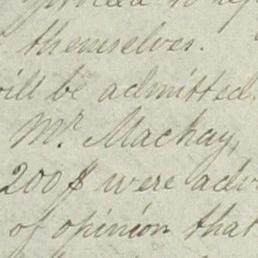 themselves.
will be admitted.
Mr. Mackay,
200$ were adv
of opinion that